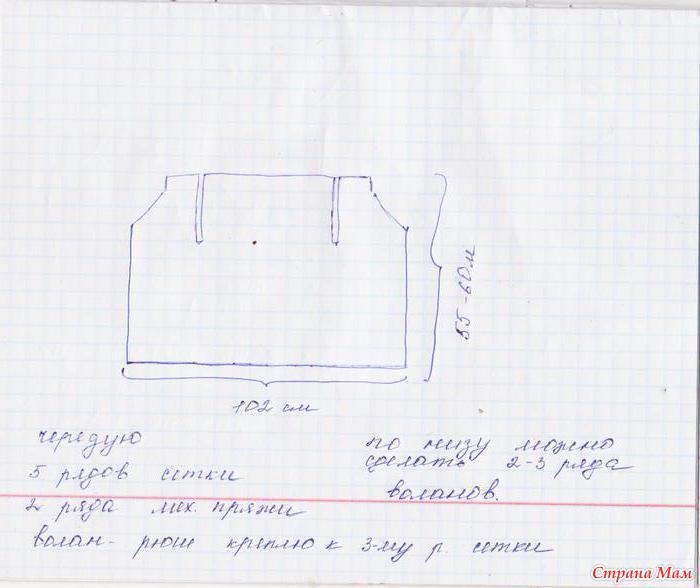 55-60 м
102 см
чередую
5 рядов сетки
2 ряда мех. пряжи
волан- рюш креплю к 3-му р. сетки
по низу можно
сделать 2-3 ряда
воланов.
Страна Мам